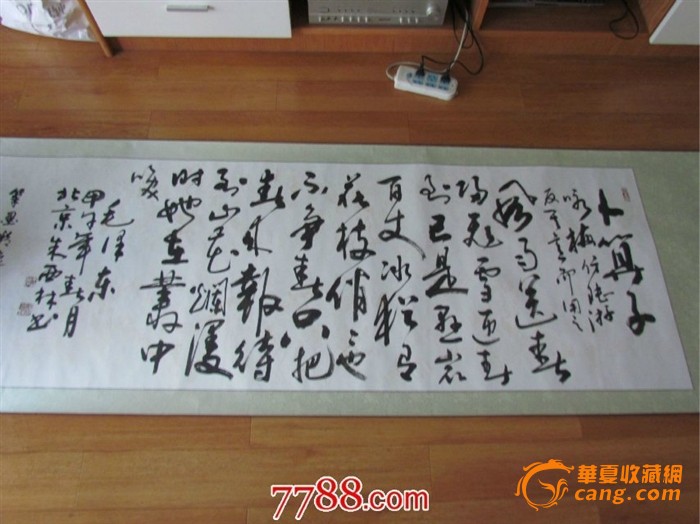 卜算子
咏梅 陆游
反其意而用之
风雨送春
归飛雪迎春
到已是悬岩
百丈冰犹有
花枝俏也
不争春只把
春来報待
到山花爛漫
时她在叢中
咲
毛泽东
甲午年春月
北京朱西林书
7788.com
華夏收藏網
cang.com